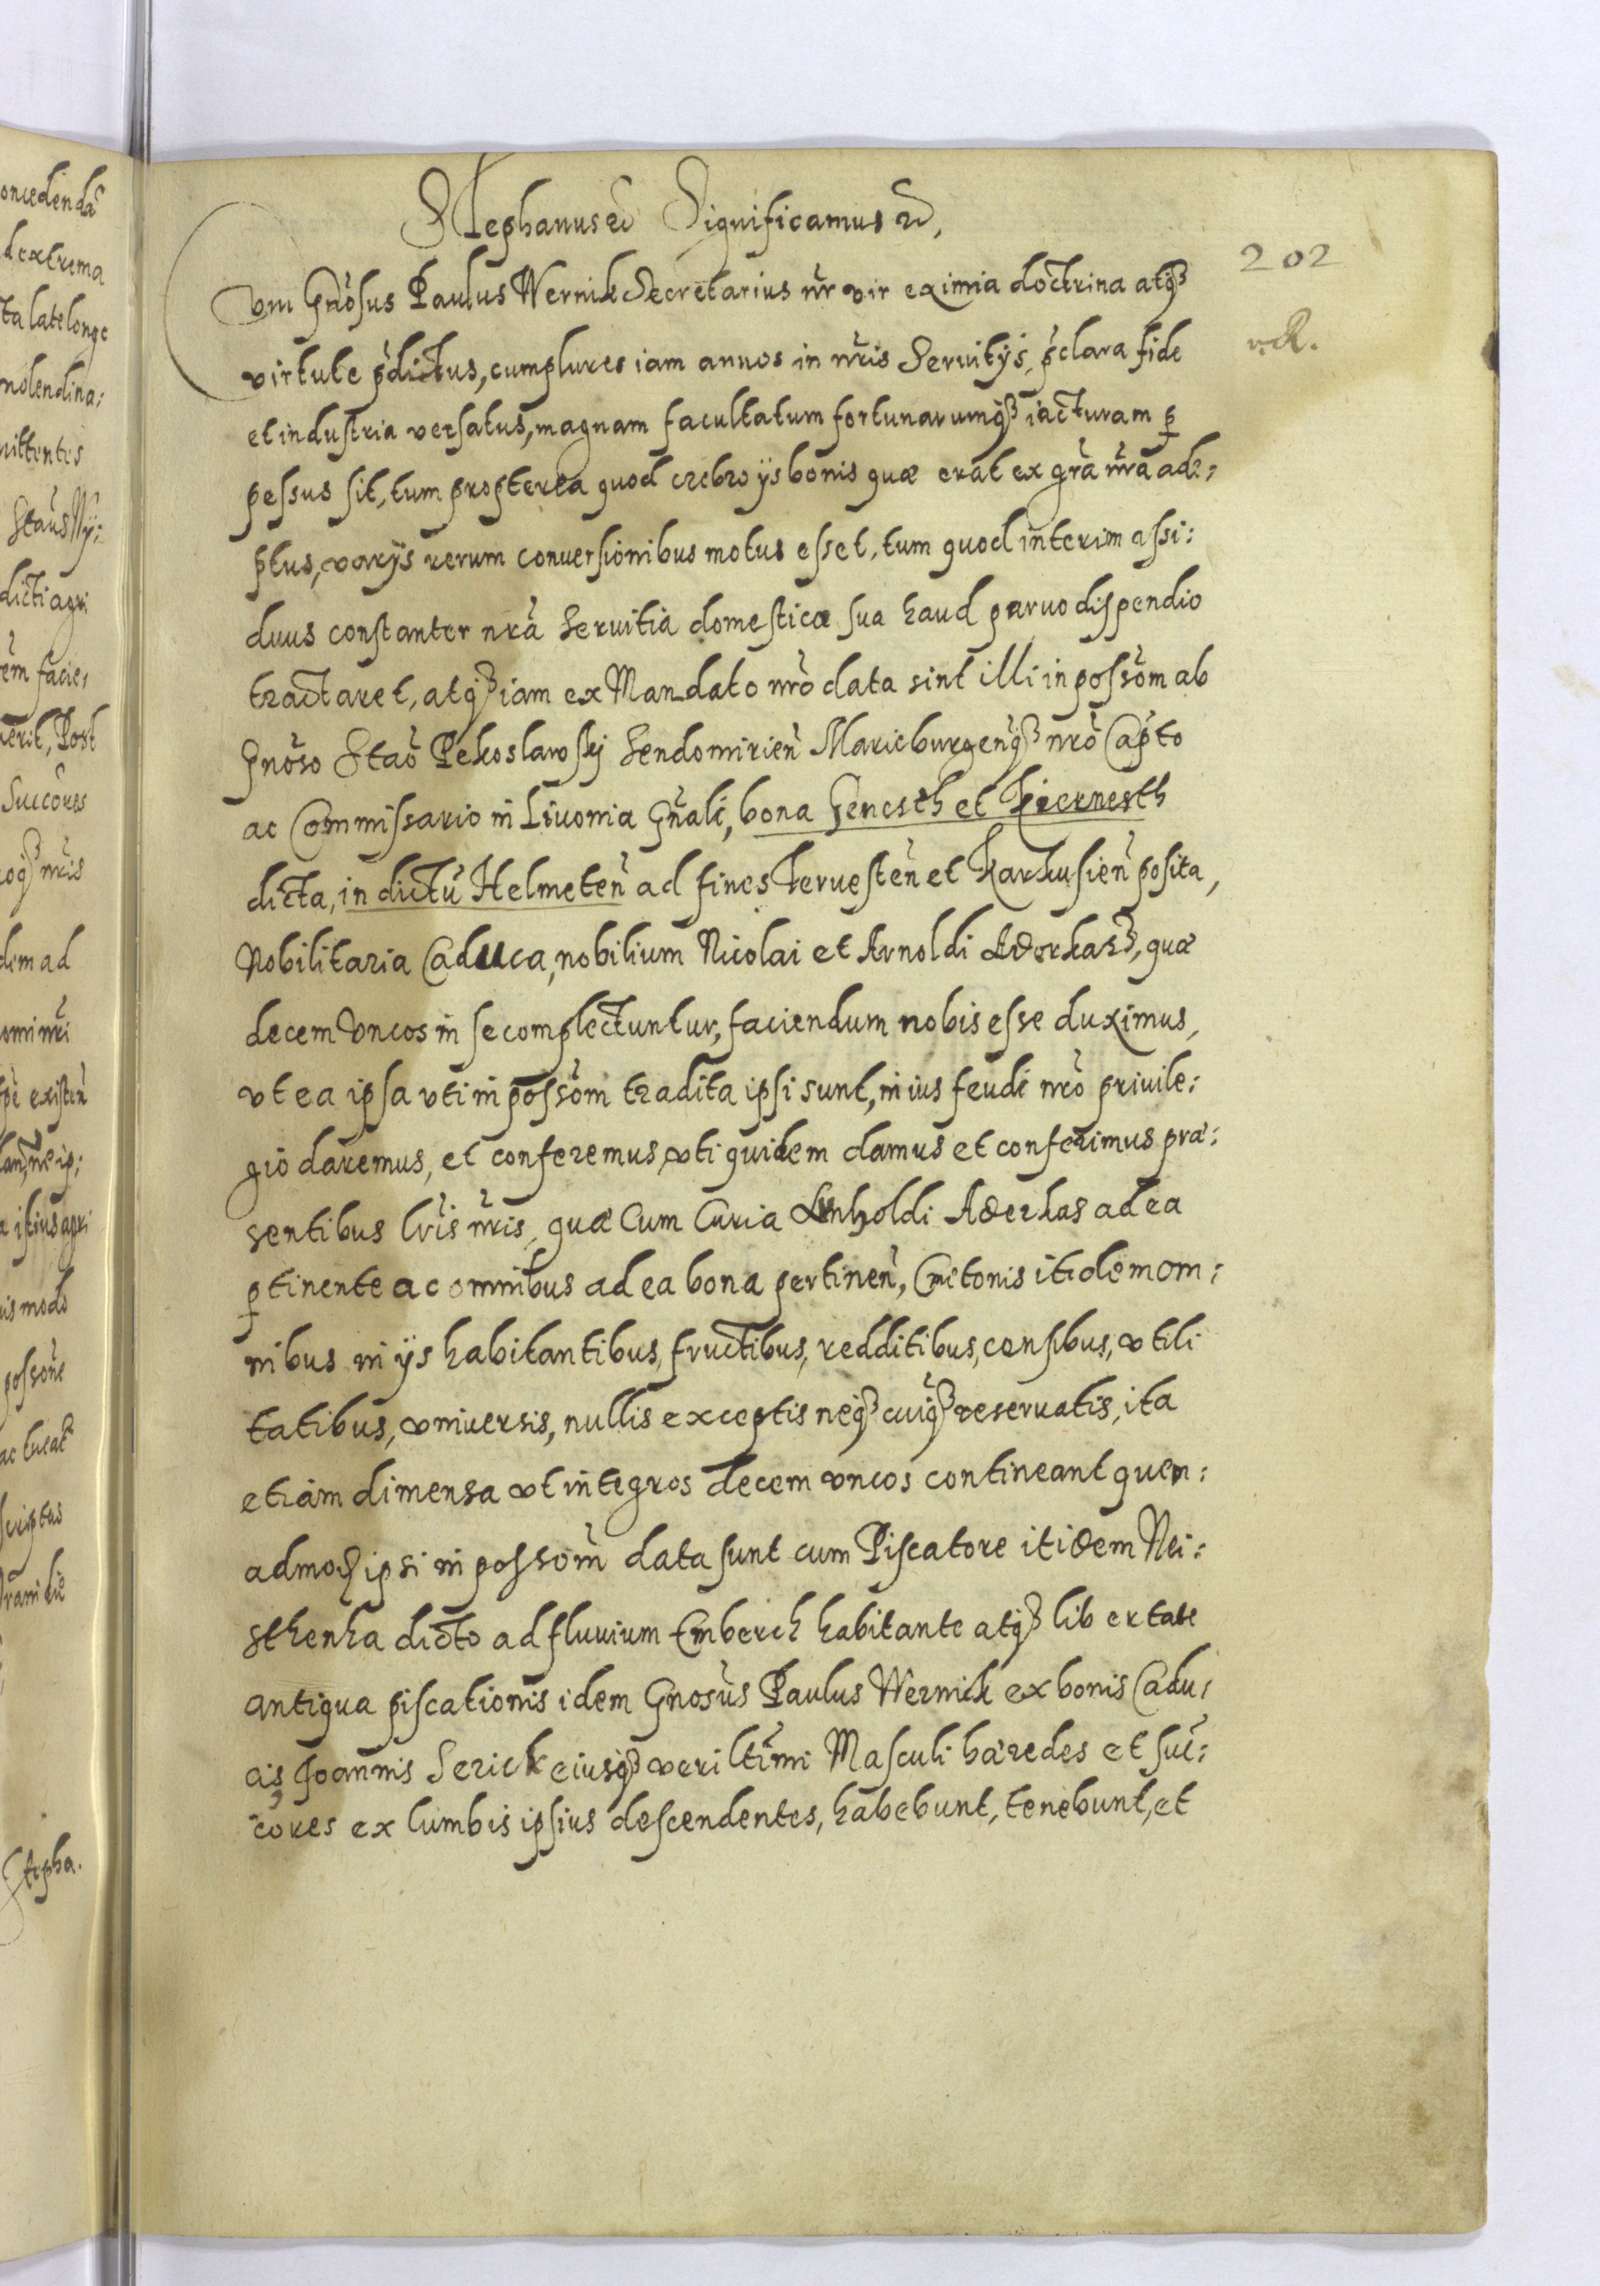 Stephanus etc Significamus etc,
202
Cum Gnosus Paulus Wernik Secretarius nr vir eximia doctrina atq3
v. R.
virtute pdictus, cumplures iam annos in nris Seruitijs, pclara fide
et industria versatus, magnam facultatum fortunarumq3 iacturam p
pessus sit, tum propterea quod crebro ijs bonis quæ erat ex gra nra ade:
ptus, varijs rerum conuersionibus motus esset, tum quod interim assi:
duus constanter nra Seruitia domesticæ sua haud paruo dispendio
tractaret, atq3 iam ex Mandato nro data sint illi in possom ab
Gnoso Stao Pekoslawskj Sendomirien Marieburgenq3 nro Capto
ac Commissario in Liuonia Gnali, bona Genesth et Kiernesth
dicta, in dictu Helmeten ad fines Teruesten et Karkusien posita,
Nobilitaria Caduca, nobilium Nicolai et Arnoldi Aderkas3, quæ
decem Vncos in se complectuntur, faciendum nobis esse duximus,
vt ea ipsa vti in possom tradita ipsi sunt, in ius feudi nro priuile:
gio daremus, et conferemus, vti quidem damus et conferimus præ:
sentibus lris nris, quæ Cum Curia Linholdi Aderkas ad ea
ptinente ac omnibus ad ea bona pertinen, Cmetonis itidem om:
nibus in ijs habitantibus, fructibus, redditibus, censibus, vtili
tatibus, vniuersis, nullis exceptis neq3 cuiq3 reseruatis, ita
etiam dimensa vt integros decem vncos contineant quem:
admod ipsi in possom data sunt cum Piscatore itidem Nei:
sthenka dicto ad fluuium Emberch habitante atq3 libertate
antiqua piscationis idem Gnosus Paulus Wernick ex bonis Cadu:
cis Joannis Serick eiusq3 veri ltimi Masculi hæredes et suc:
cores ex lumbis ipsius descendentes, habebunt, tenebunt, et